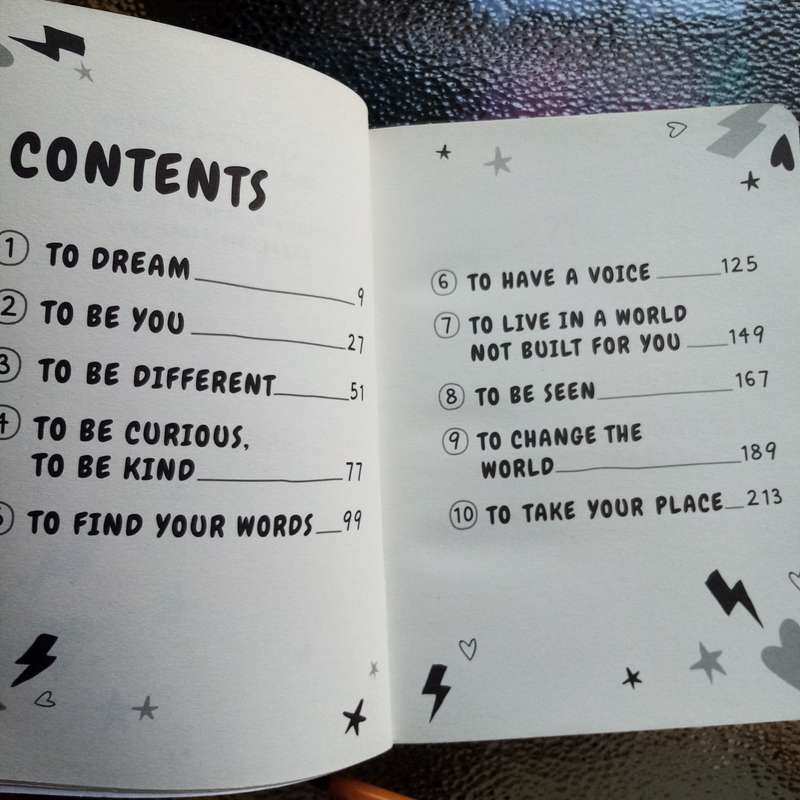 CONTENTS
1 TO DREAM 9
2 TO BE YOU 27
3 TO BE DIFFERENT 51
4 TO BE CURIOUS,
TO BE KIND 77
5 TO FIND YOUR WORDS 99
6 TO HAVE A VOICE 125
7 TO LIVE IN A WORLD
NOT BUILT FOR YOU 149
8 TO BE SEEN 167
9 TO CHANGE THE
WORLD 189
10 TO TAKE YOUR PLACE 213